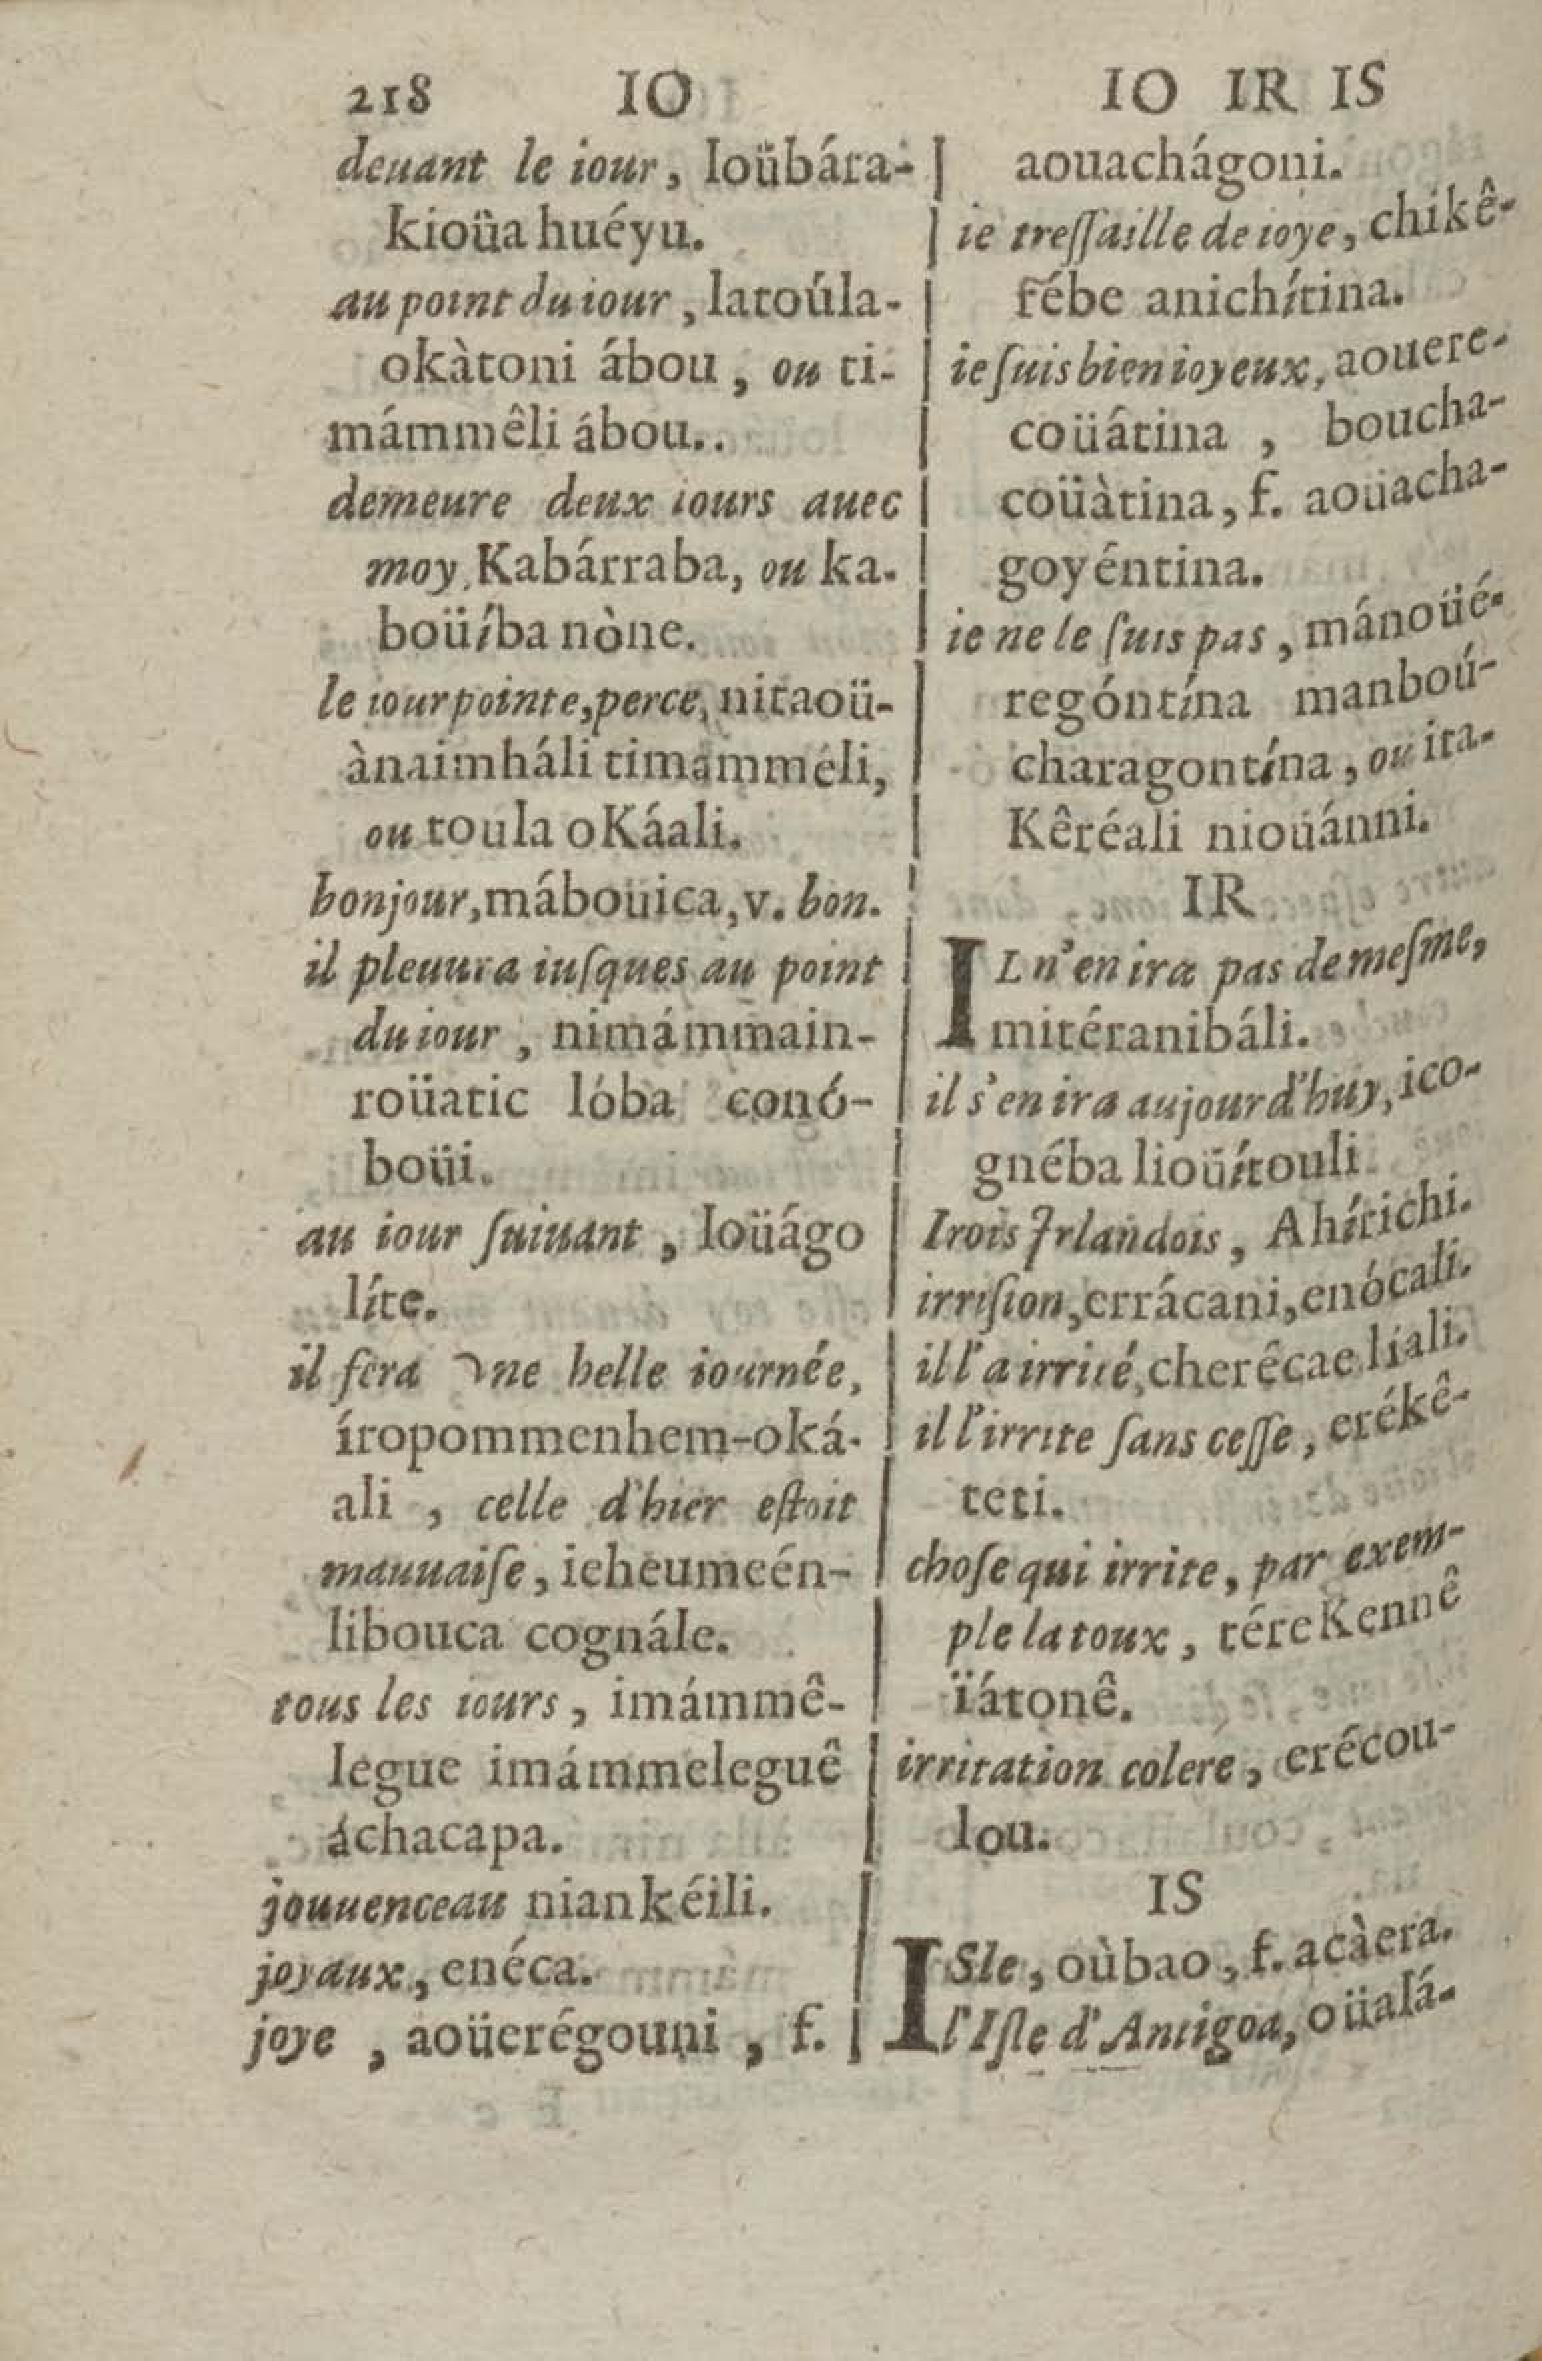 218 IO
deuant le iour, loübára-
kioüa huéyu.
au point du iour, latoúla-
okàtoni ábou, ou ti-
mámmêli ábou..
demeure deux iours auec
moy, Kabárraba, ou ka-
boüíba nòne.
le iour pointe, perce, nitaoü-
ànaimháli timámmêli,
ou toula oKáali.
bonjour, máboüica, v. bon.
il pleuura iuſques au point
du iour, nimámmain-
roüatic lóba conó-
boüi.
au iour ſuiuant, loüágo
líte.
il fera vne belle iournée,
íropommenhem-oká-
ali, celle d'hier eſtoit
mauuaiſe, icheumeén-
libouca cognále.
tous les iours, imámmê-
legue imámmeleguê
áchacapa.
jouuenceau niankéili.
joyaux, enéca.
joye, aoüerégouni, f.
IO IR IS
aouachágoni.
ie treſſaille de ioye, chikê-
rébe anichítina.
ie ſuis bien ioyeux, aouere-
coüátina, boucha-
coüàtina, f. aoüacha-
goyéntina.
ie ne le ſuis pas, mánoüé-
regóntína manboú-
charagontína, ou ita-
Kêréali nioüánni.
IR
IL n'en ira pas de meſme,
mitéranibáli.
il s'en ira aujourd'huy, ico-
gnéba lioüítouli
Irois Irlandois, Ahítichi.
irriſion, errácani, enócali.
il l'a irrité, cherêcae líali.
il l'irrite ſans ceſſe, erékê-
teti.
choſe qui irrite, par exem-
ple la toux, téreKennê
ïátonê.
irritation colere, erécou-
lou.
IS
ISle, oùbao, f. acàera.
l'Iſle d'Antigoa, oüalá-